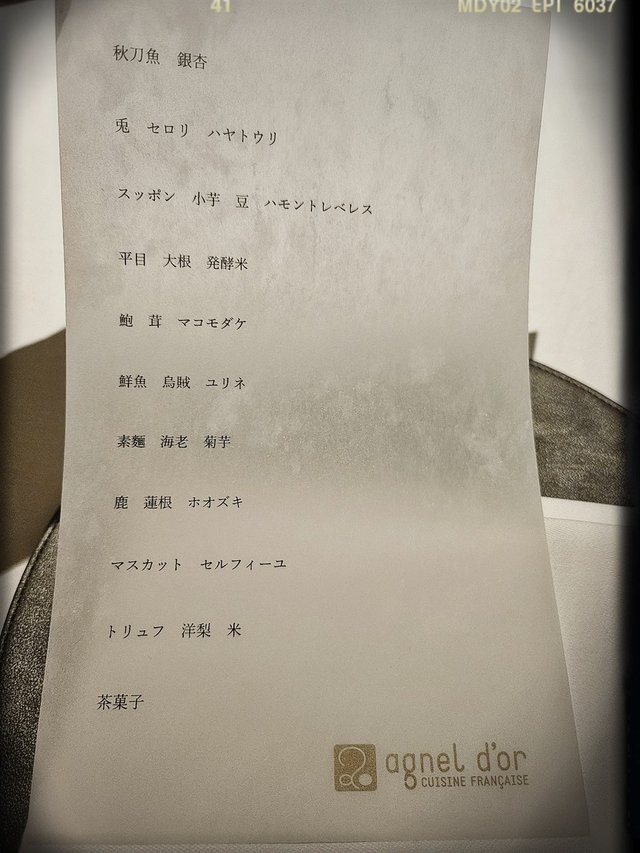 41 MDY02 EPT 6037
秋刀魚 銀杏
兎 セロリ ハヤトウリ
スッポン 小芋 豆 ハモントレベレス
平目 大根 発酵米
鮑 茸 マコモダケ
鮮魚 烏賊 ユリネ
素麺 海老 菊芋
鹿 蓮根 ホオズキ
マスカット セルフィーユ
トリュフ 洋梨 米
茶菓子
agnel d'or
CUISINE FRANÇAISE